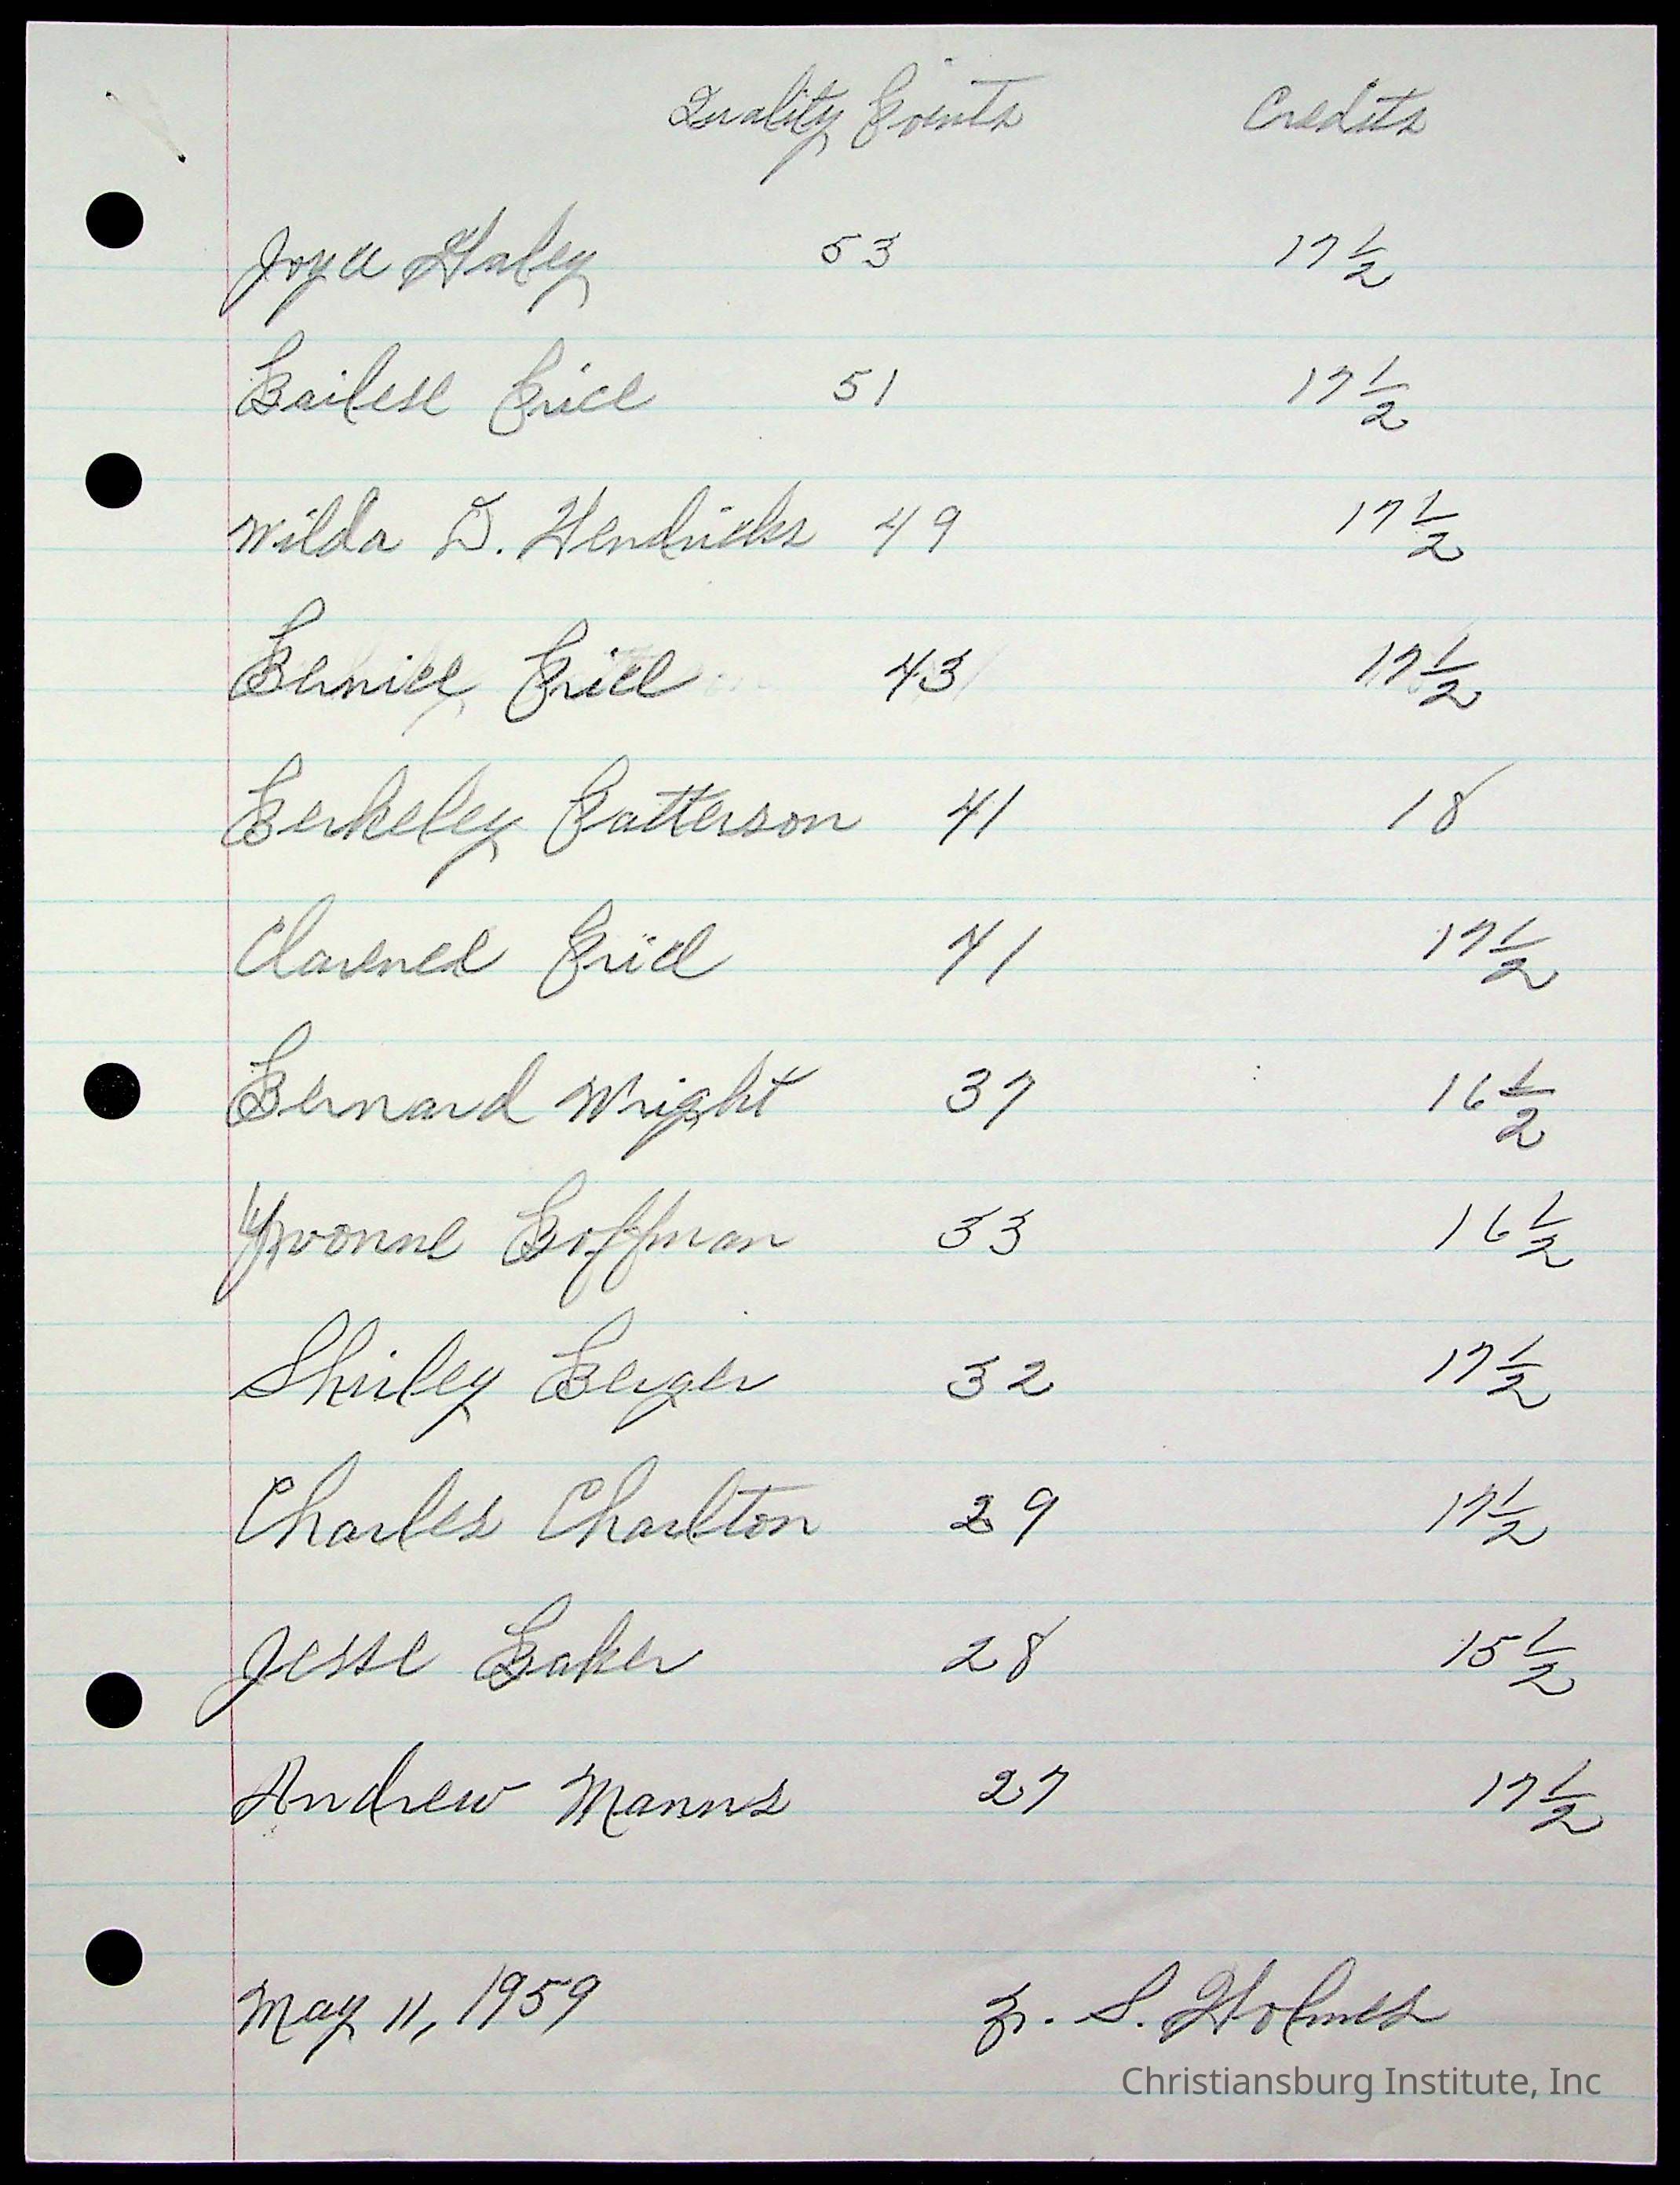 Quality Points Credits
Joyce Haley 53 17 1/2
Bailese Price 51 17 1/2
Wilda D. Hendricks 49 17 1/2
Bernice Price 43 17 1/2
Berkeley Patterson 41 18
Clarence Price 41 17 1/2
Bernard Wright 37 16 1/2
Yvonne Boffman 33 16 1/2
Shirley Berger 32 17 1/2
Charles Charlton 29 17 1/2
Jesse Baker 28 15 1/2
Andrew Manns 27 17 1/2
May 11, 1959 S. Holmes
Christiansburg Institute, Inc